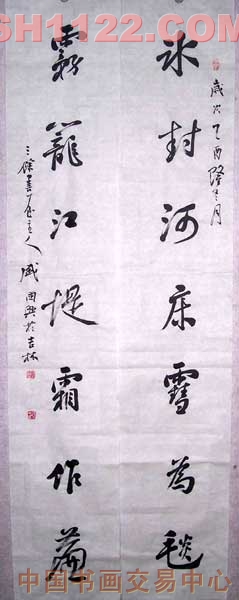 SH1122.COM
歲次乙酉隆冬月
冰封河床雪為毯
霧籠江堤霜作
三餘書屋主人
於吉林
中国书画交易中心